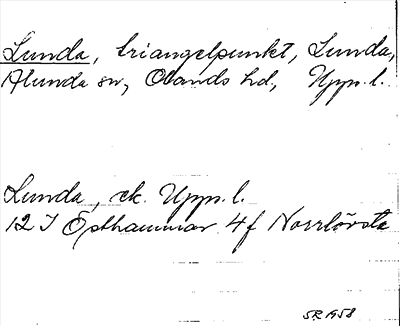 Lunda, triangelpunkt, Lunda,
Alunda sn, Olands hd, Upp. l.
Lunda, ek. Upp. l.
12 I Östhammar 4f Norrlövsta
SR 1958